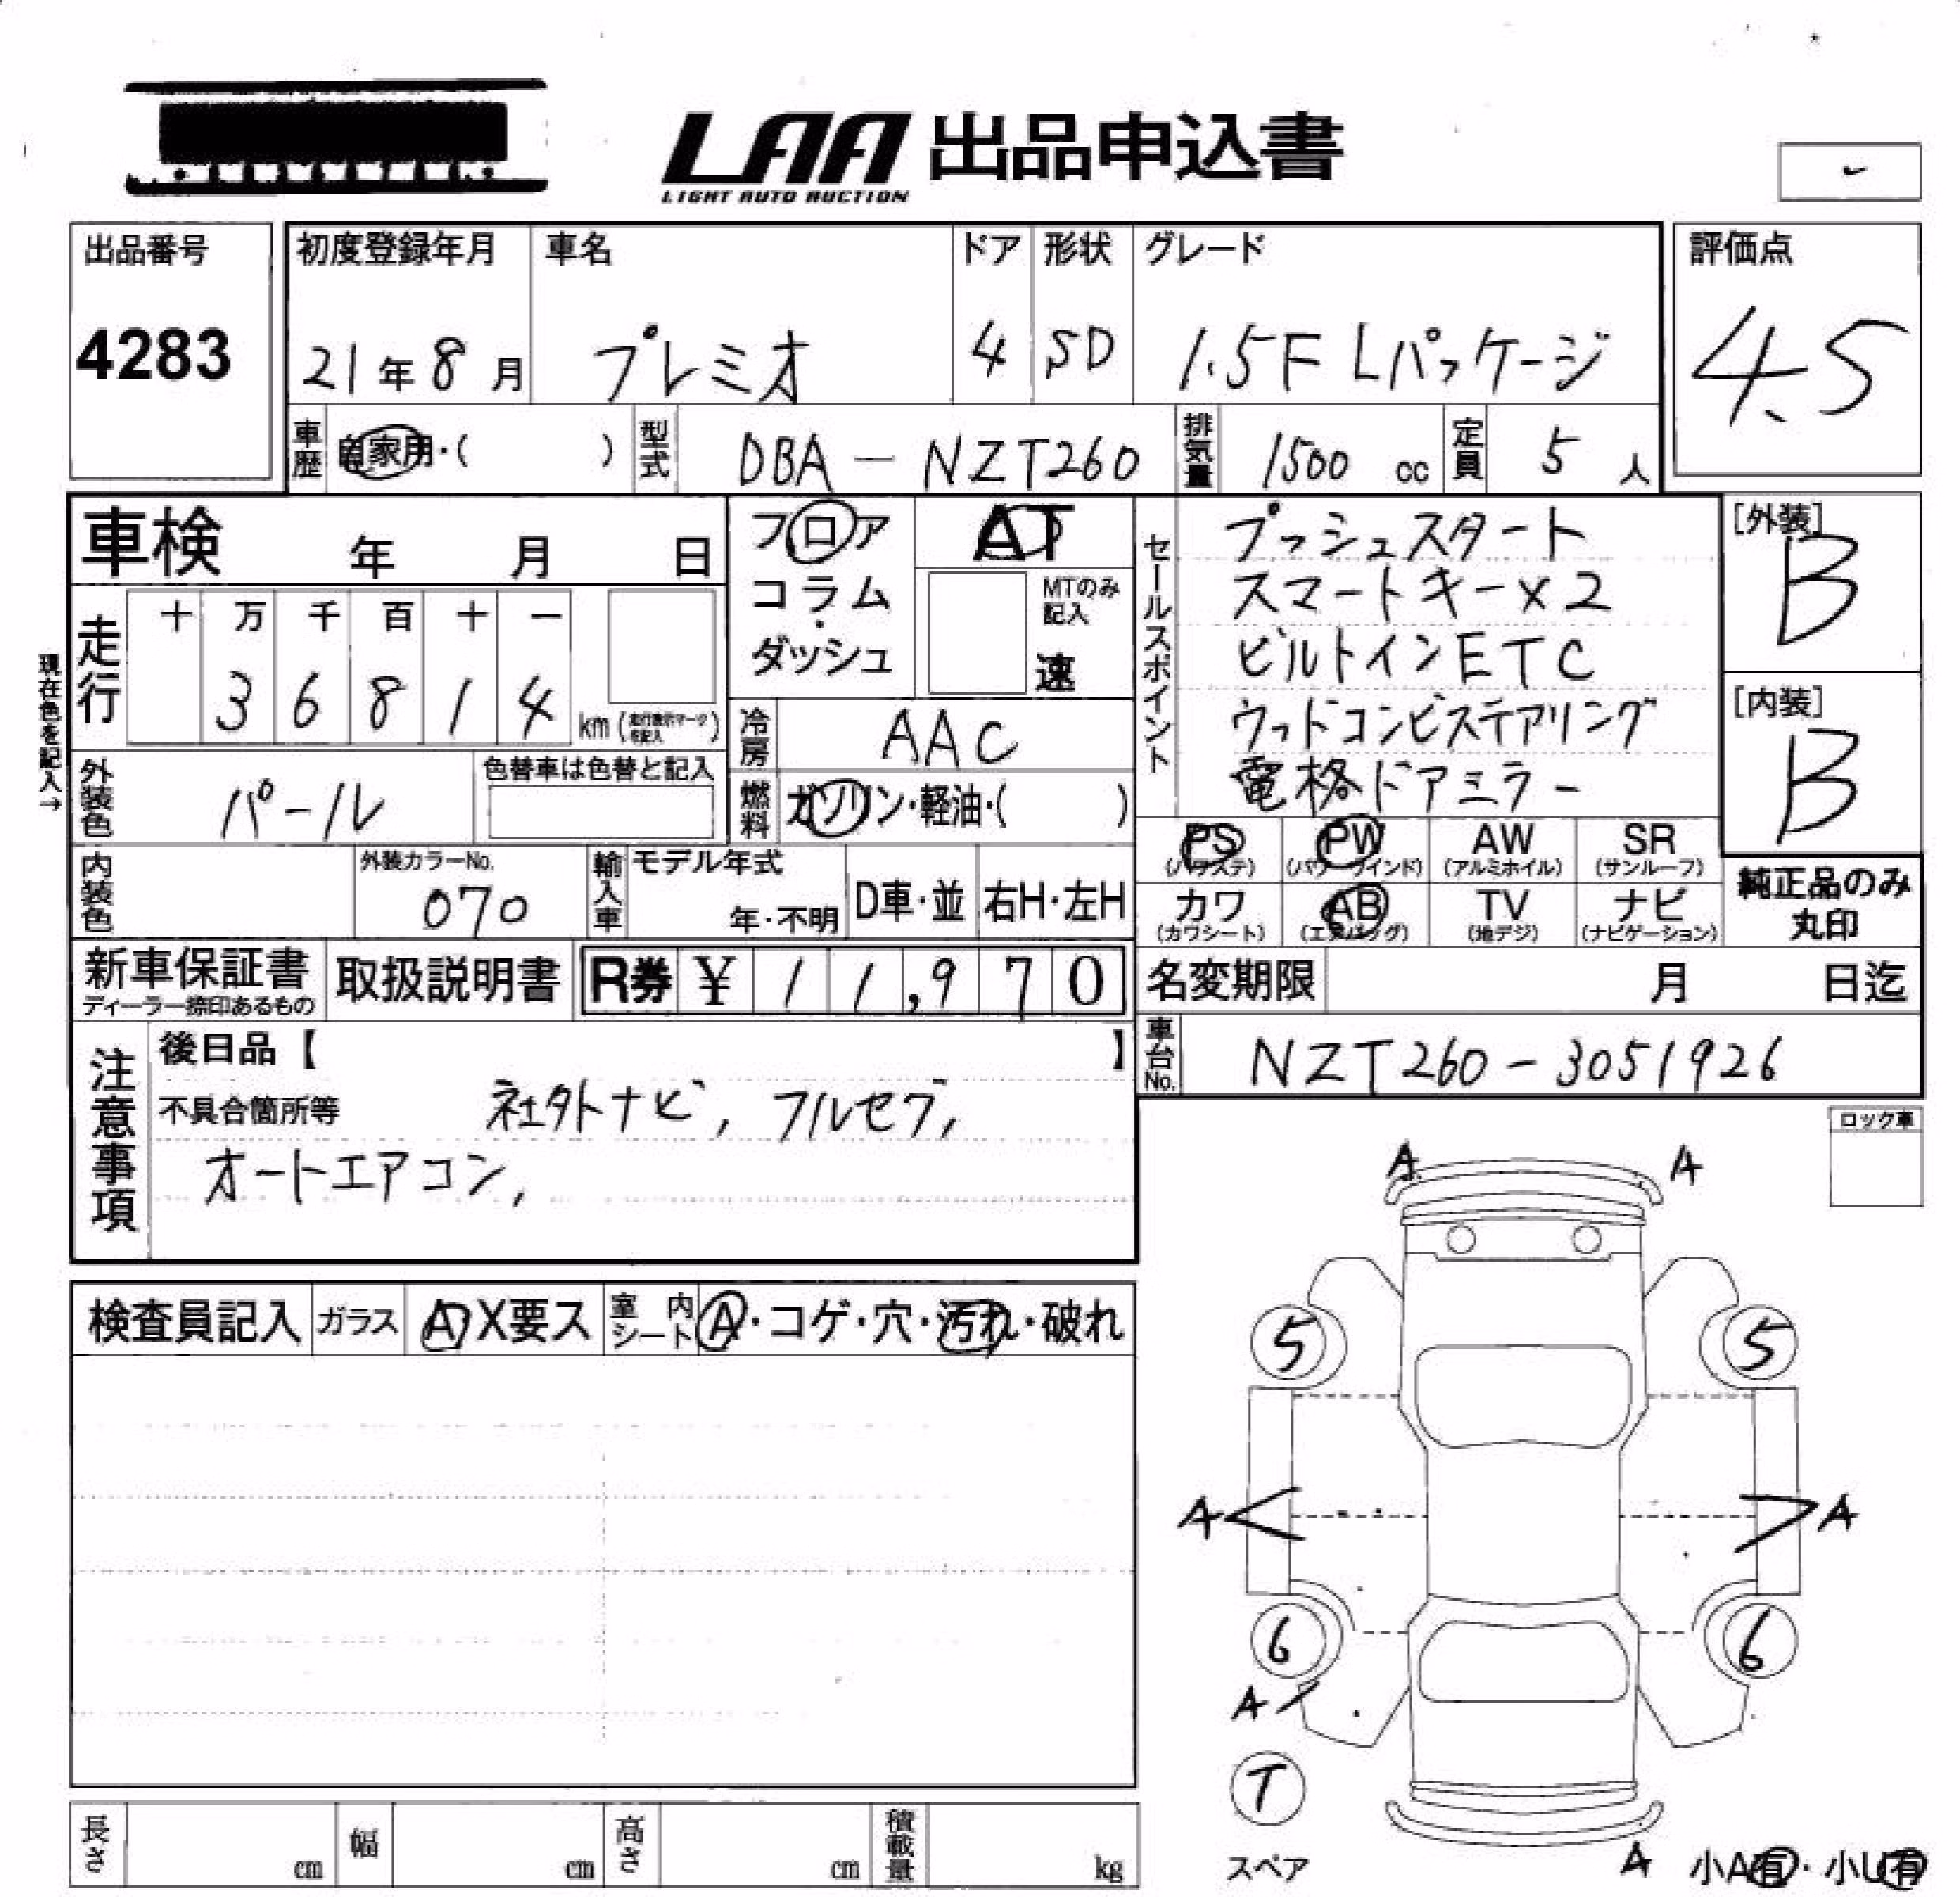 LAA 出品申込書
LIGHT AUTO AUCTION
出品番号
4283
初度登録年月
21年8月
車名
プレミオ
ドア
4
形状
SD
グレード
1.5F Lパッケージ
評価点
4.5
車歴
自家用・( )
型式
DBA-NZT260
排気量
1500 cc
定員
5 人
車検 年 月 日
フロア
コラム
・
ダッシュ
AT
MTのみ
記入
速
セールスポイント
プッシュスタート
スマートキー×2
ビルトインETC
ウッドコンビステアリング
電格ドアミラー
[外装]
B
[内装]
B
現在色を記入→
走行
十 万 千 百 十 一
3 6 8 1 4
km (走行表示マークを記入)
冷房
AAC
外装色
パール
色替車は色替と記入
燃料
ガソリン・軽油・( )
PS PW AW SR
(パワステ) (パワーウインド) (アルミホイル) (サンルーフ)
カワ AB TV ナビ
(カワシート) (エアバッグ) (地デジ) (ナビゲーション)
純正品のみ
丸印
内装色
外装カラーNo.
070
輸入車
モデル年式
年・不明
D車・並
右H・左H
新車保証書
ディーラー捺印あるもの
取扱説明書
R券 ¥11,970
名変期限 月 日迄
車台No.
NZT260-3051926
注意事項
後日品【 】
不具合箇所等 社外ナビ, フルセグ,
オートエアコン,
ロック車
A A
5 5
A A
6 6
A
T
スペア
A
小A有・小U有
検査員記入
ガラス
A X要ス
室内
シート
A・コゲ・穴・汚れ・破れ
長さ cm
幅 cm
高さ cm
積載量 kg